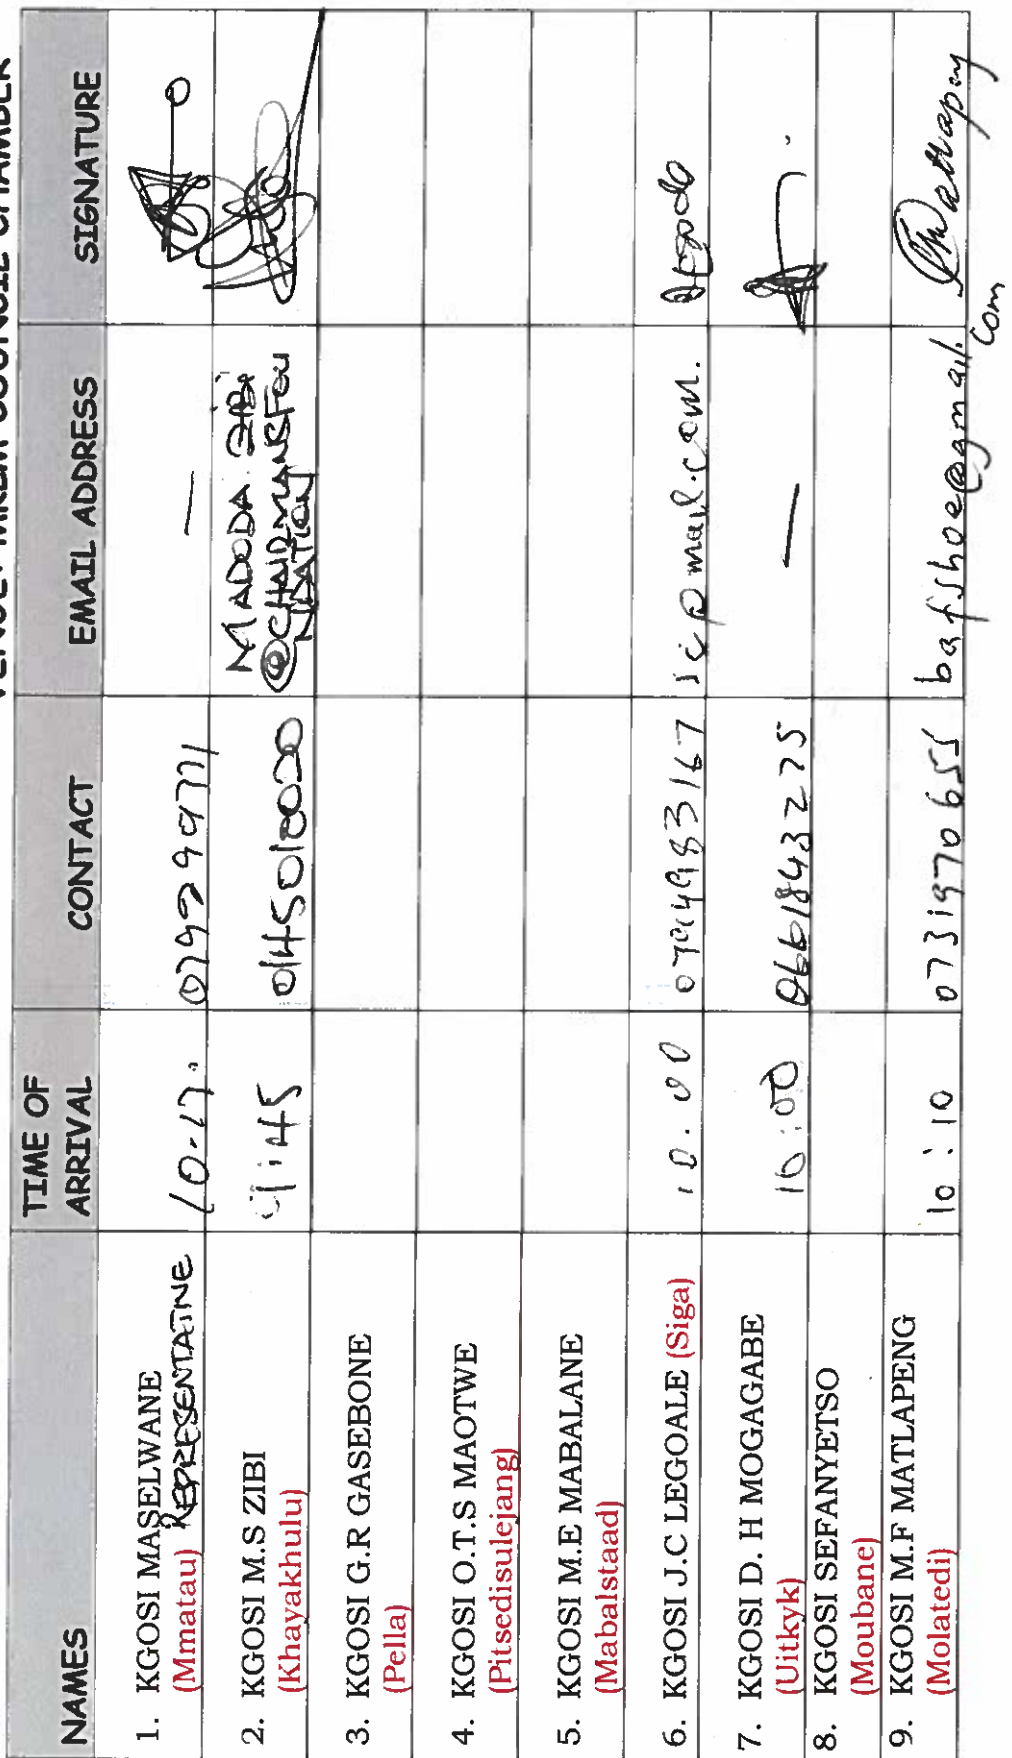 NAMES TIME OF ARRIVAL CONTACT EMAIL ADDRESS SIGNATURE
1. KGOSI MASELWANE
(Mmatau) REPRESENTATIVE 10.17. —
2. KGOSI M.S ZIBI MADODA.ZIBI
(Khayakhulu) 0145010020 @CHAIRMANSFOU
NDATION
3. KGOSI G.R GASEBONE
(Pella)
4. KGOSI O.T.S MAOTWE
(Pitsedisulejang)
5. KGOSI M.E MABALANE
(Mabalstaad)
6. KGOSI J.C LEGOALE (Siga) 10.00
7. KGOSI D. H MOGAGABE
(Uitkyk) 10:00 0661843275 —
8. KGOSI SEFANYETSO
(Moubane)
9. KGOSI M.F MATLAPENG
(Molatedi) 10:10 0731970655 bafishoe@gmail.
com